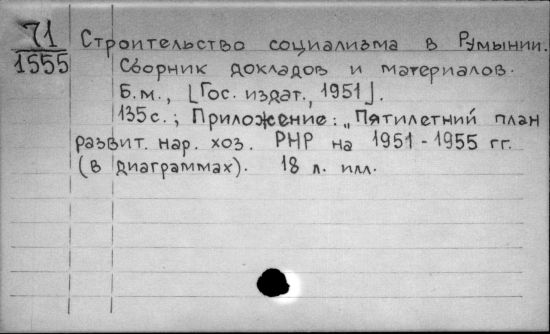 71
1555
Строительство социализма в Румынии.
Сборник докладов и материалов.
Б.м., [Гос. издат., 1951].
135 с.; Приложение: „Пятилетний план
развит. нар. хоз. РНР на 1951-1955 гг.
(в диаграммах). 18 л. илл.